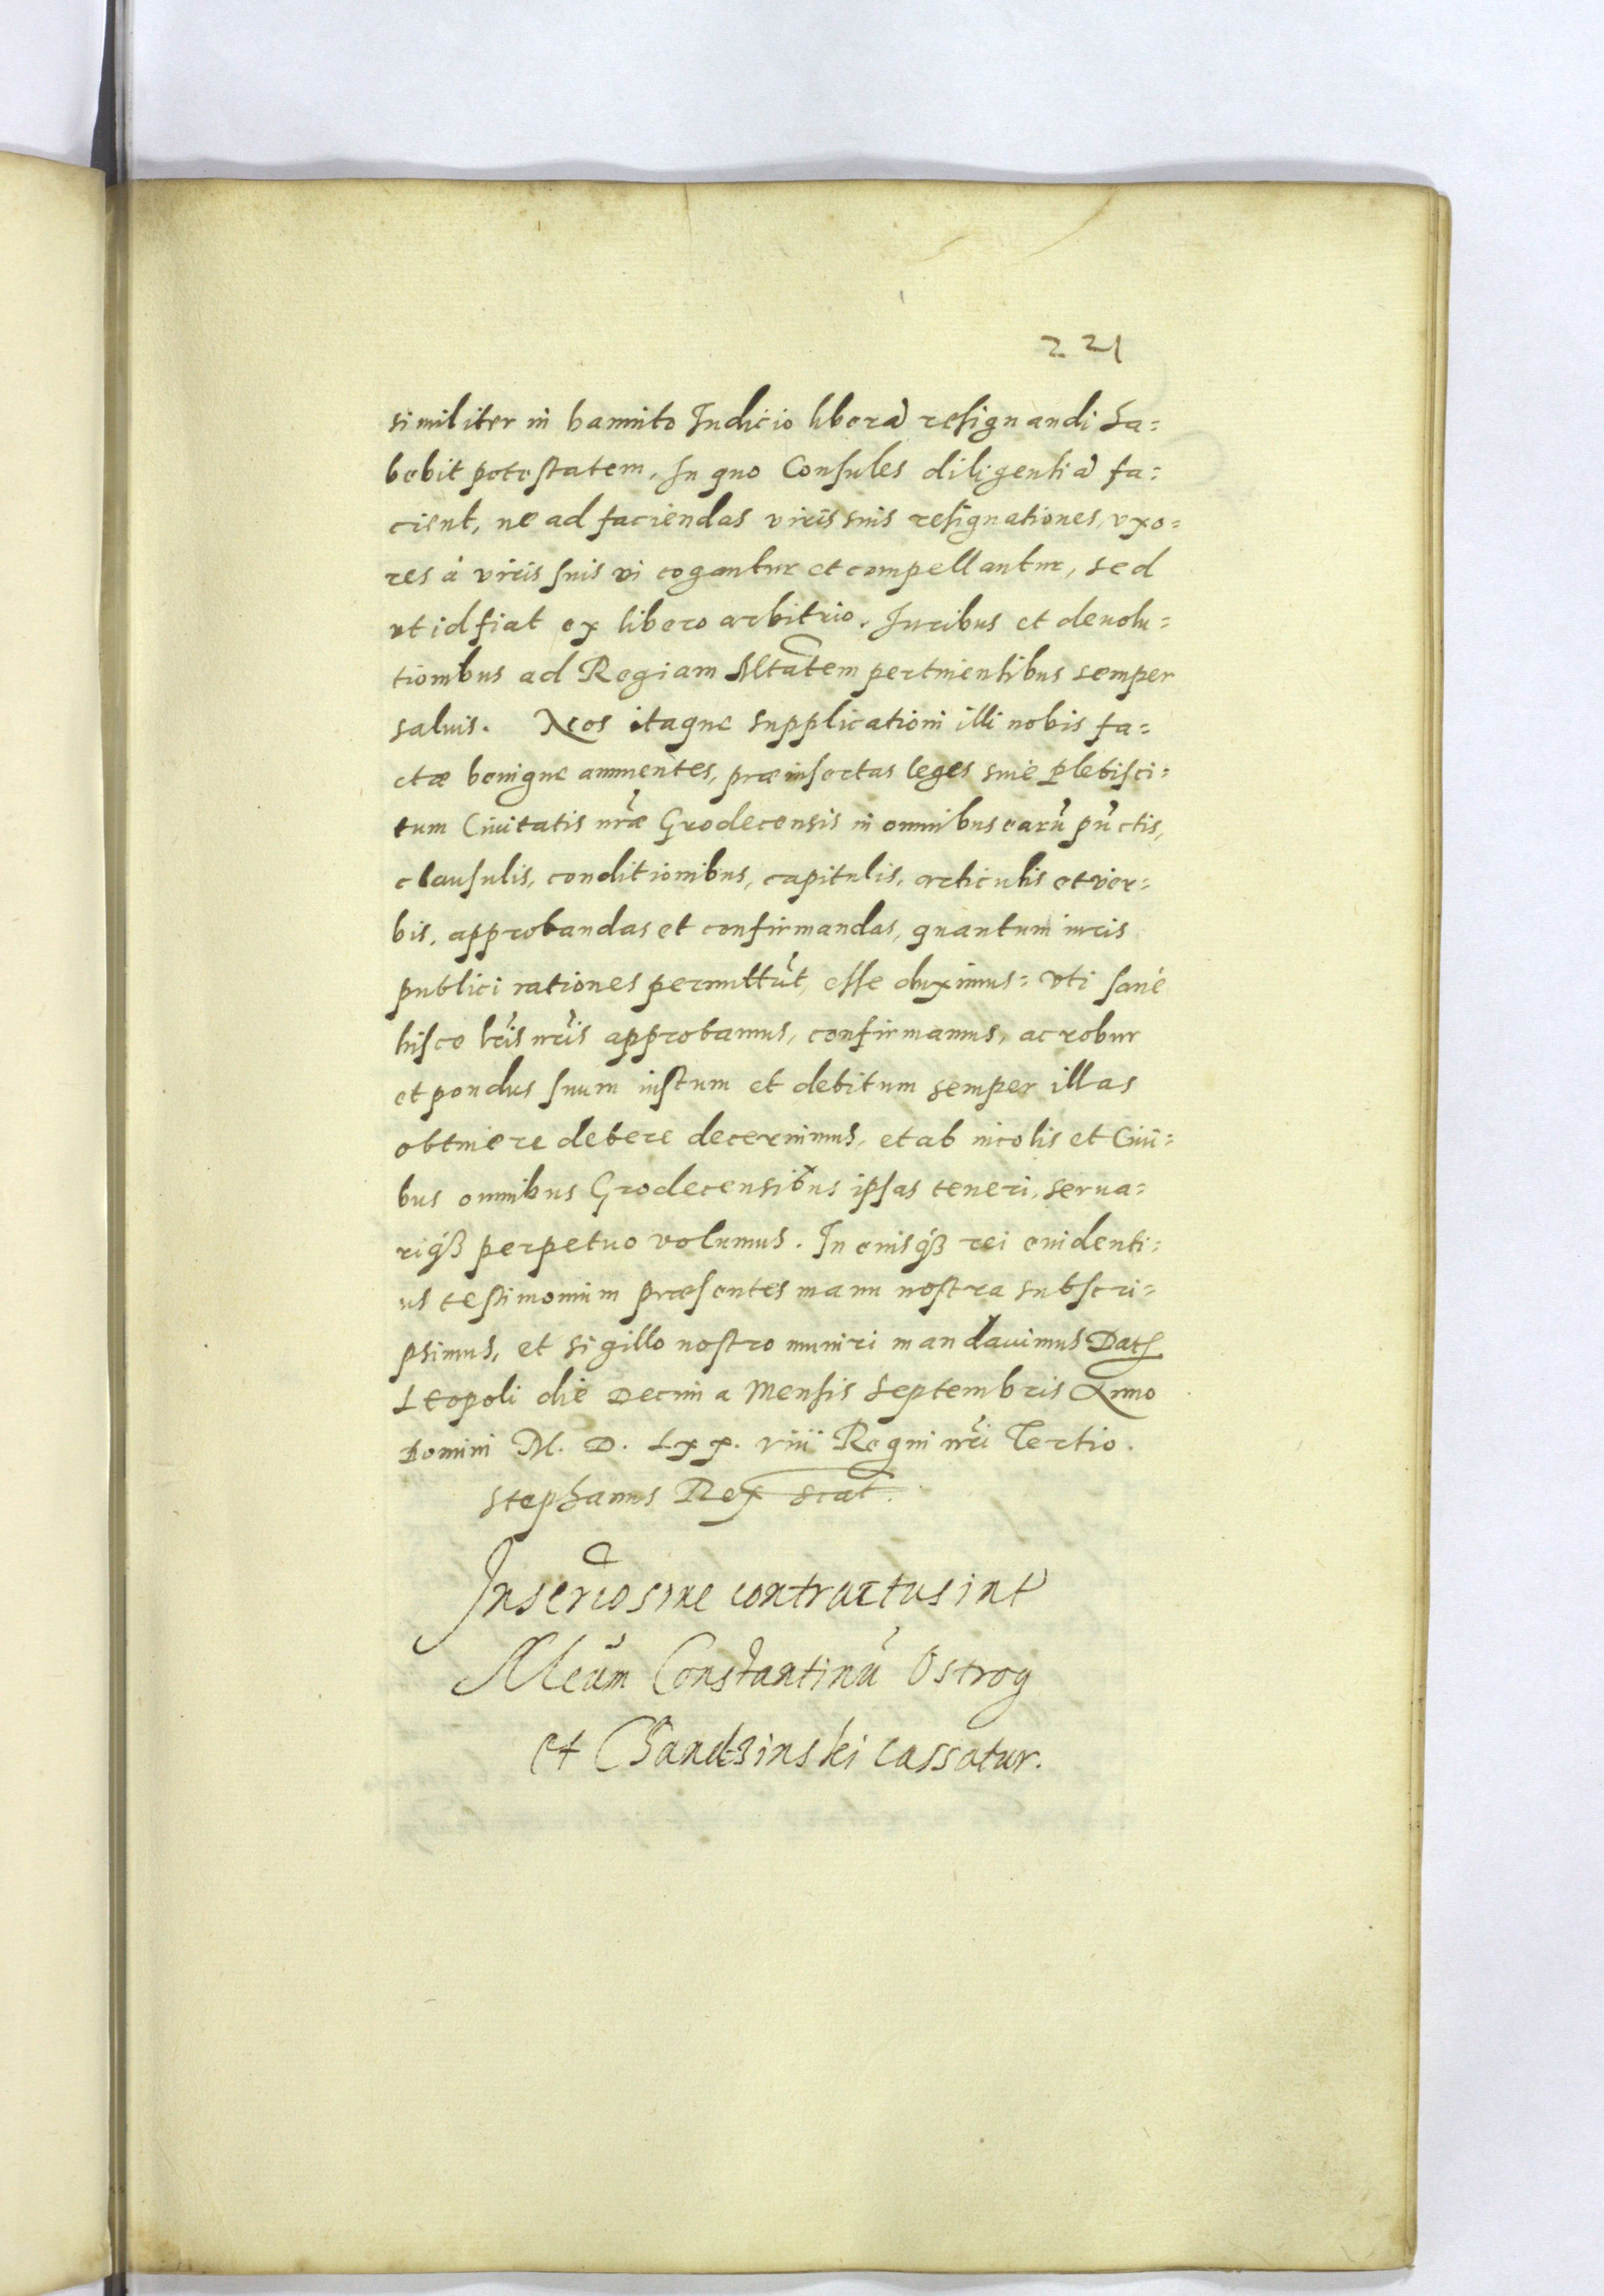 221
similiter in bannito Iudicio liberā resignandi ha=
bebit potestatem, In quo Consules diligentiā fa=
cient, ne ad faciendas viris suis resignationes, vxo=
res à viris suis vi cogantur et compellantur, sed
ut id fiat ex libero arbitrio. Iuribus et deuolu=
tionibus ad Regiam Mtātem pertinentibus semper
saluis. Nos itaque supplicationi illi nobis fa=
ctæ benigne annuentes, præinsertas leges siue plebisci=
tum Ciuitatis nr̃æ Grodecensis in omnibus earū pūctis,
clausulis, conditionibus, capitulis, articulis et ver=
bis, approbandas et confirmandas, quantum iuris
publici rationes permittūt, esse duximus: Vti sanè
hisce lr̃is nr̃is approbamus, confirmamus, ac robur
et pondus suum iustum et debitum semper illas
obtinere debere decernimus, et ab incolis et Ciui=
bus omnibus Grodecensibus ipsas teneri, serua=
riq́ꝫ perpetuo volumus. In cuiusq́ꝫ rei euidenti=
us testimonium præsentes manu nostra subscri=
psimus, et sigillo nostro muniri mandauimus Datꝭ
Leopoli die Decima Mensis Septembris Anno
Domini M. D. Lxx. viii Regni nr̃i Tertio.
Stephanus Rex scūt.
Inscrīo siue contractus intꝰ
Alexm Constantinū Ostrog
et Chandzinski cassatur.